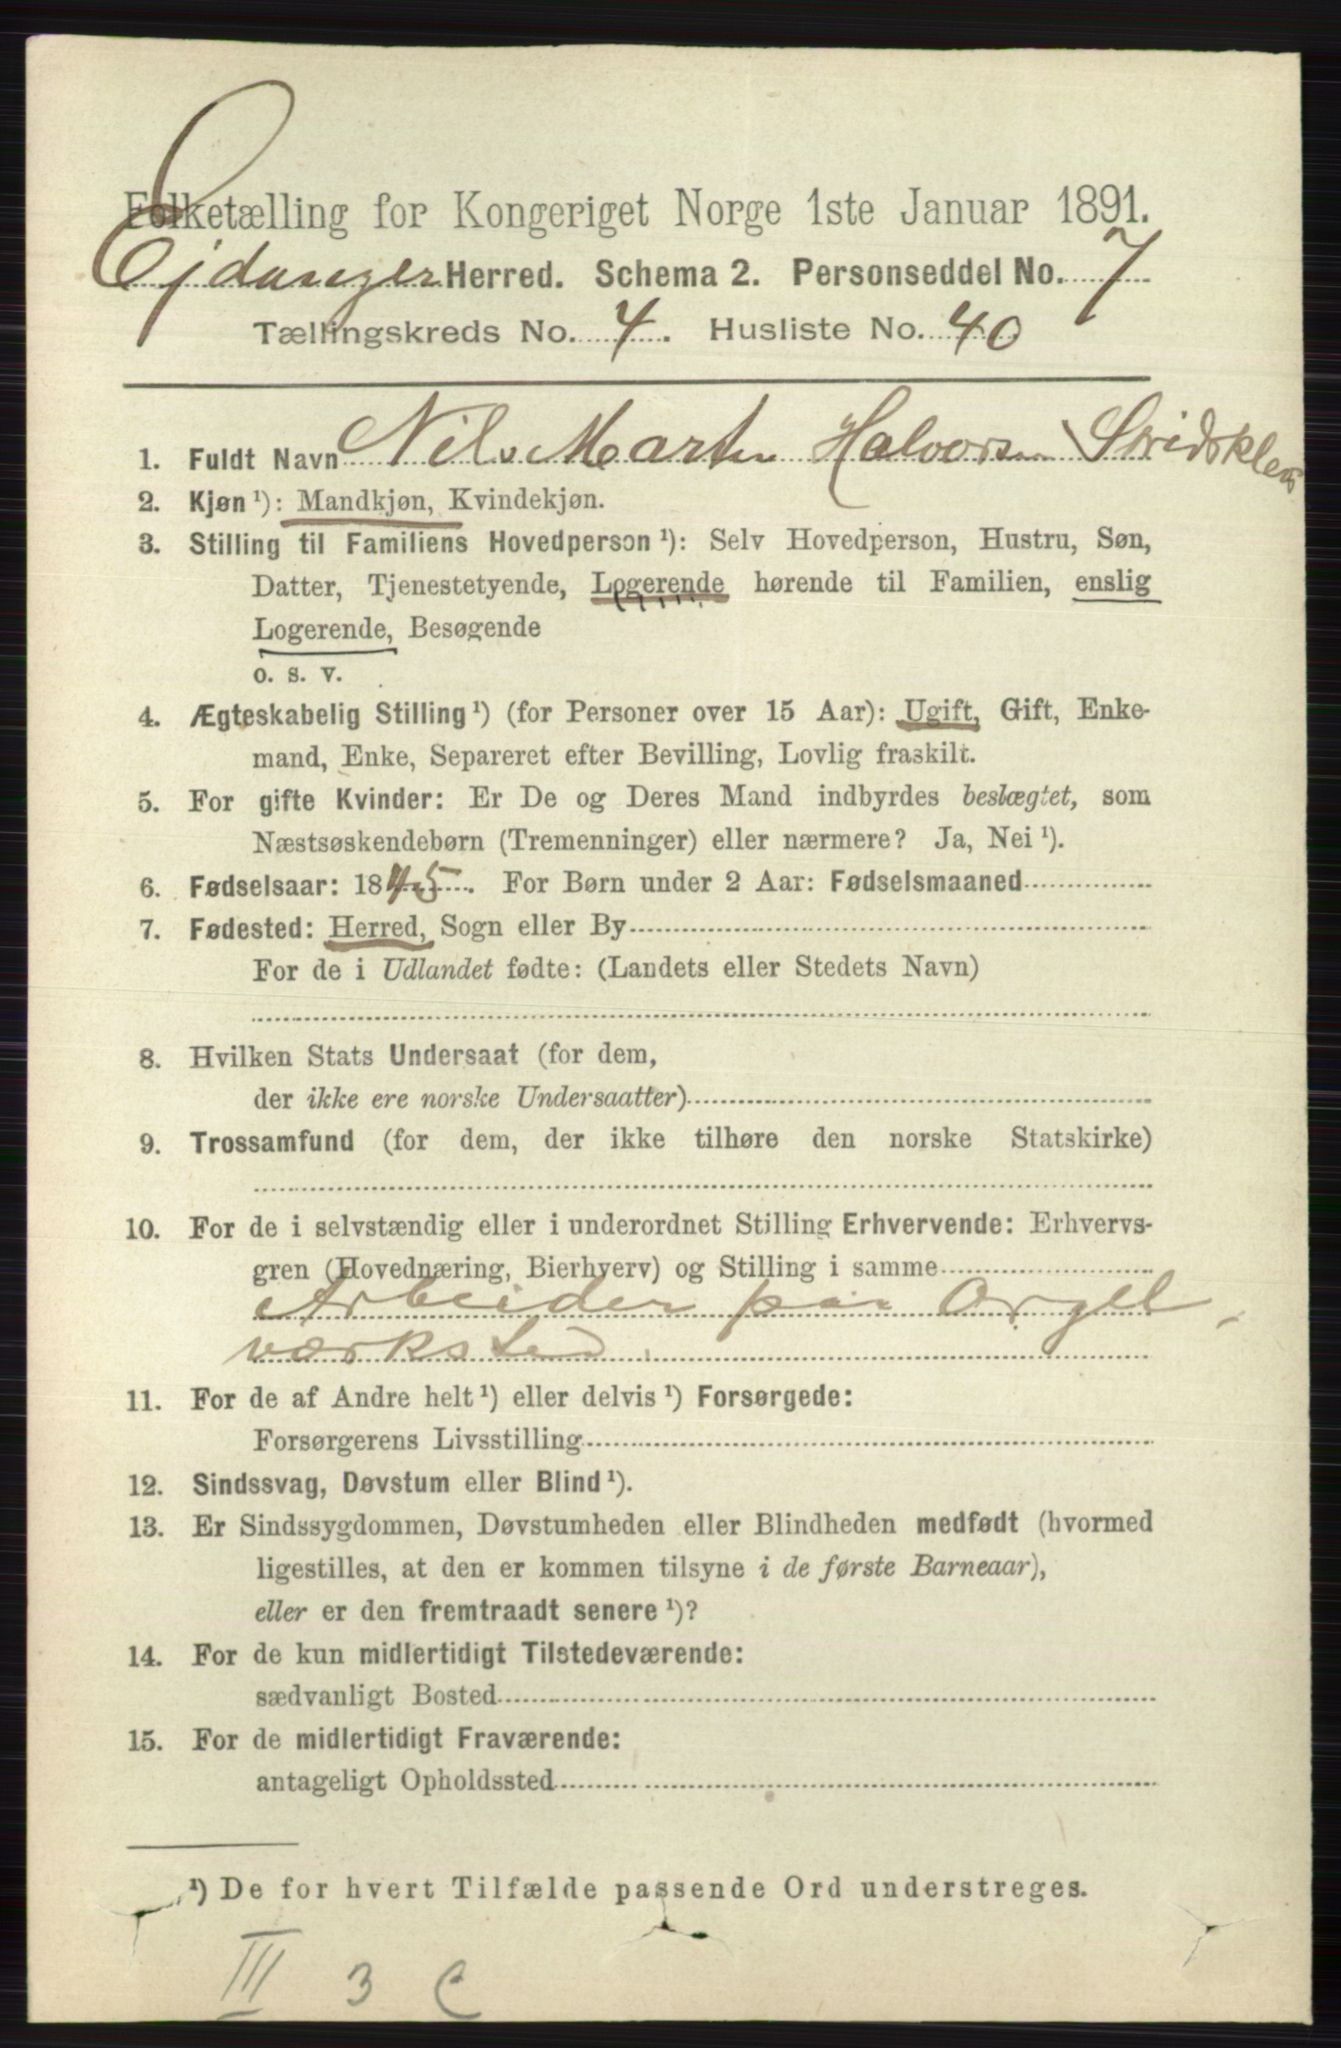 Folketælling for Kongeriget Norge 1ste Januar 1891.
Ejdanger Herred. Schema 2. Personseddel No. 7
Tællingskreds No. 4. Husliste No. 40
1. Fuldt Navn Nils Martin Halvorsen Stridsklev
2. Kjøn ¹): Mandkjøn, Kvindekjøn.
3. Stilling til Familiens Hovedperson ¹): Selv Hovedperson, Hustru, Søn,
Datter, Tjenestetyende, Logerende hørende til Familien, enslig
Logerende, Besøgende
o. s. v.
4. Ægteskabelig Stilling ¹) (for Personer over 15 Aar): Ugift, Gift, Enke-
mand, Enke, Separeret efter Bevilling, Lovlig fraskilt.
5. For gifte Kvinder: Er De og Deres Mand indbyrdes beslægtet, som
Næstsøskendebørn (Tremenninger) eller nærmere? Ja, Nei ¹).
6. Fødselsaar: 1845. For Børn under 2 Aar: Fødselsmaaned
7. Fødested: Herred, Sogn eller By
For de i Udlandet fødte: (Landets eller Stedets Navn)
8. Hvilken Stats Undersaat (for dem,
der ikke ere norske Undersaatter)
9. Trossamfund (for dem, der ikke tilhøre den norske Statskirke)
10. For de i selvstændig eller i underordnet Stilling Erhvervende: Erhvervs-
gren (Hovednæring, Bierhverv) og Stilling i samme
Arbeider paa Orgel-
værksted.
11. For de af Andre helt ¹) eller delvis ¹) Forsørgede:
Forsørgerens Livsstilling
12. Sindssvag, Døvstum eller Blind ¹).
13. Er Sindssygdommen, Døvstumheden eller Blindheden medfødt (hvormed
ligestilles, at den er kommen tilsyne i de første Barneaar),
eller er den fremtraadt senere ¹)?
14. For de kun midlertidigt Tilstedeværende:
sædvanligt Bosted
15. For de midlertidigt Fraværende:
antageligt Opholdssted
¹) De for hvert Tilfælde passende Ord understreges.
III 3 C